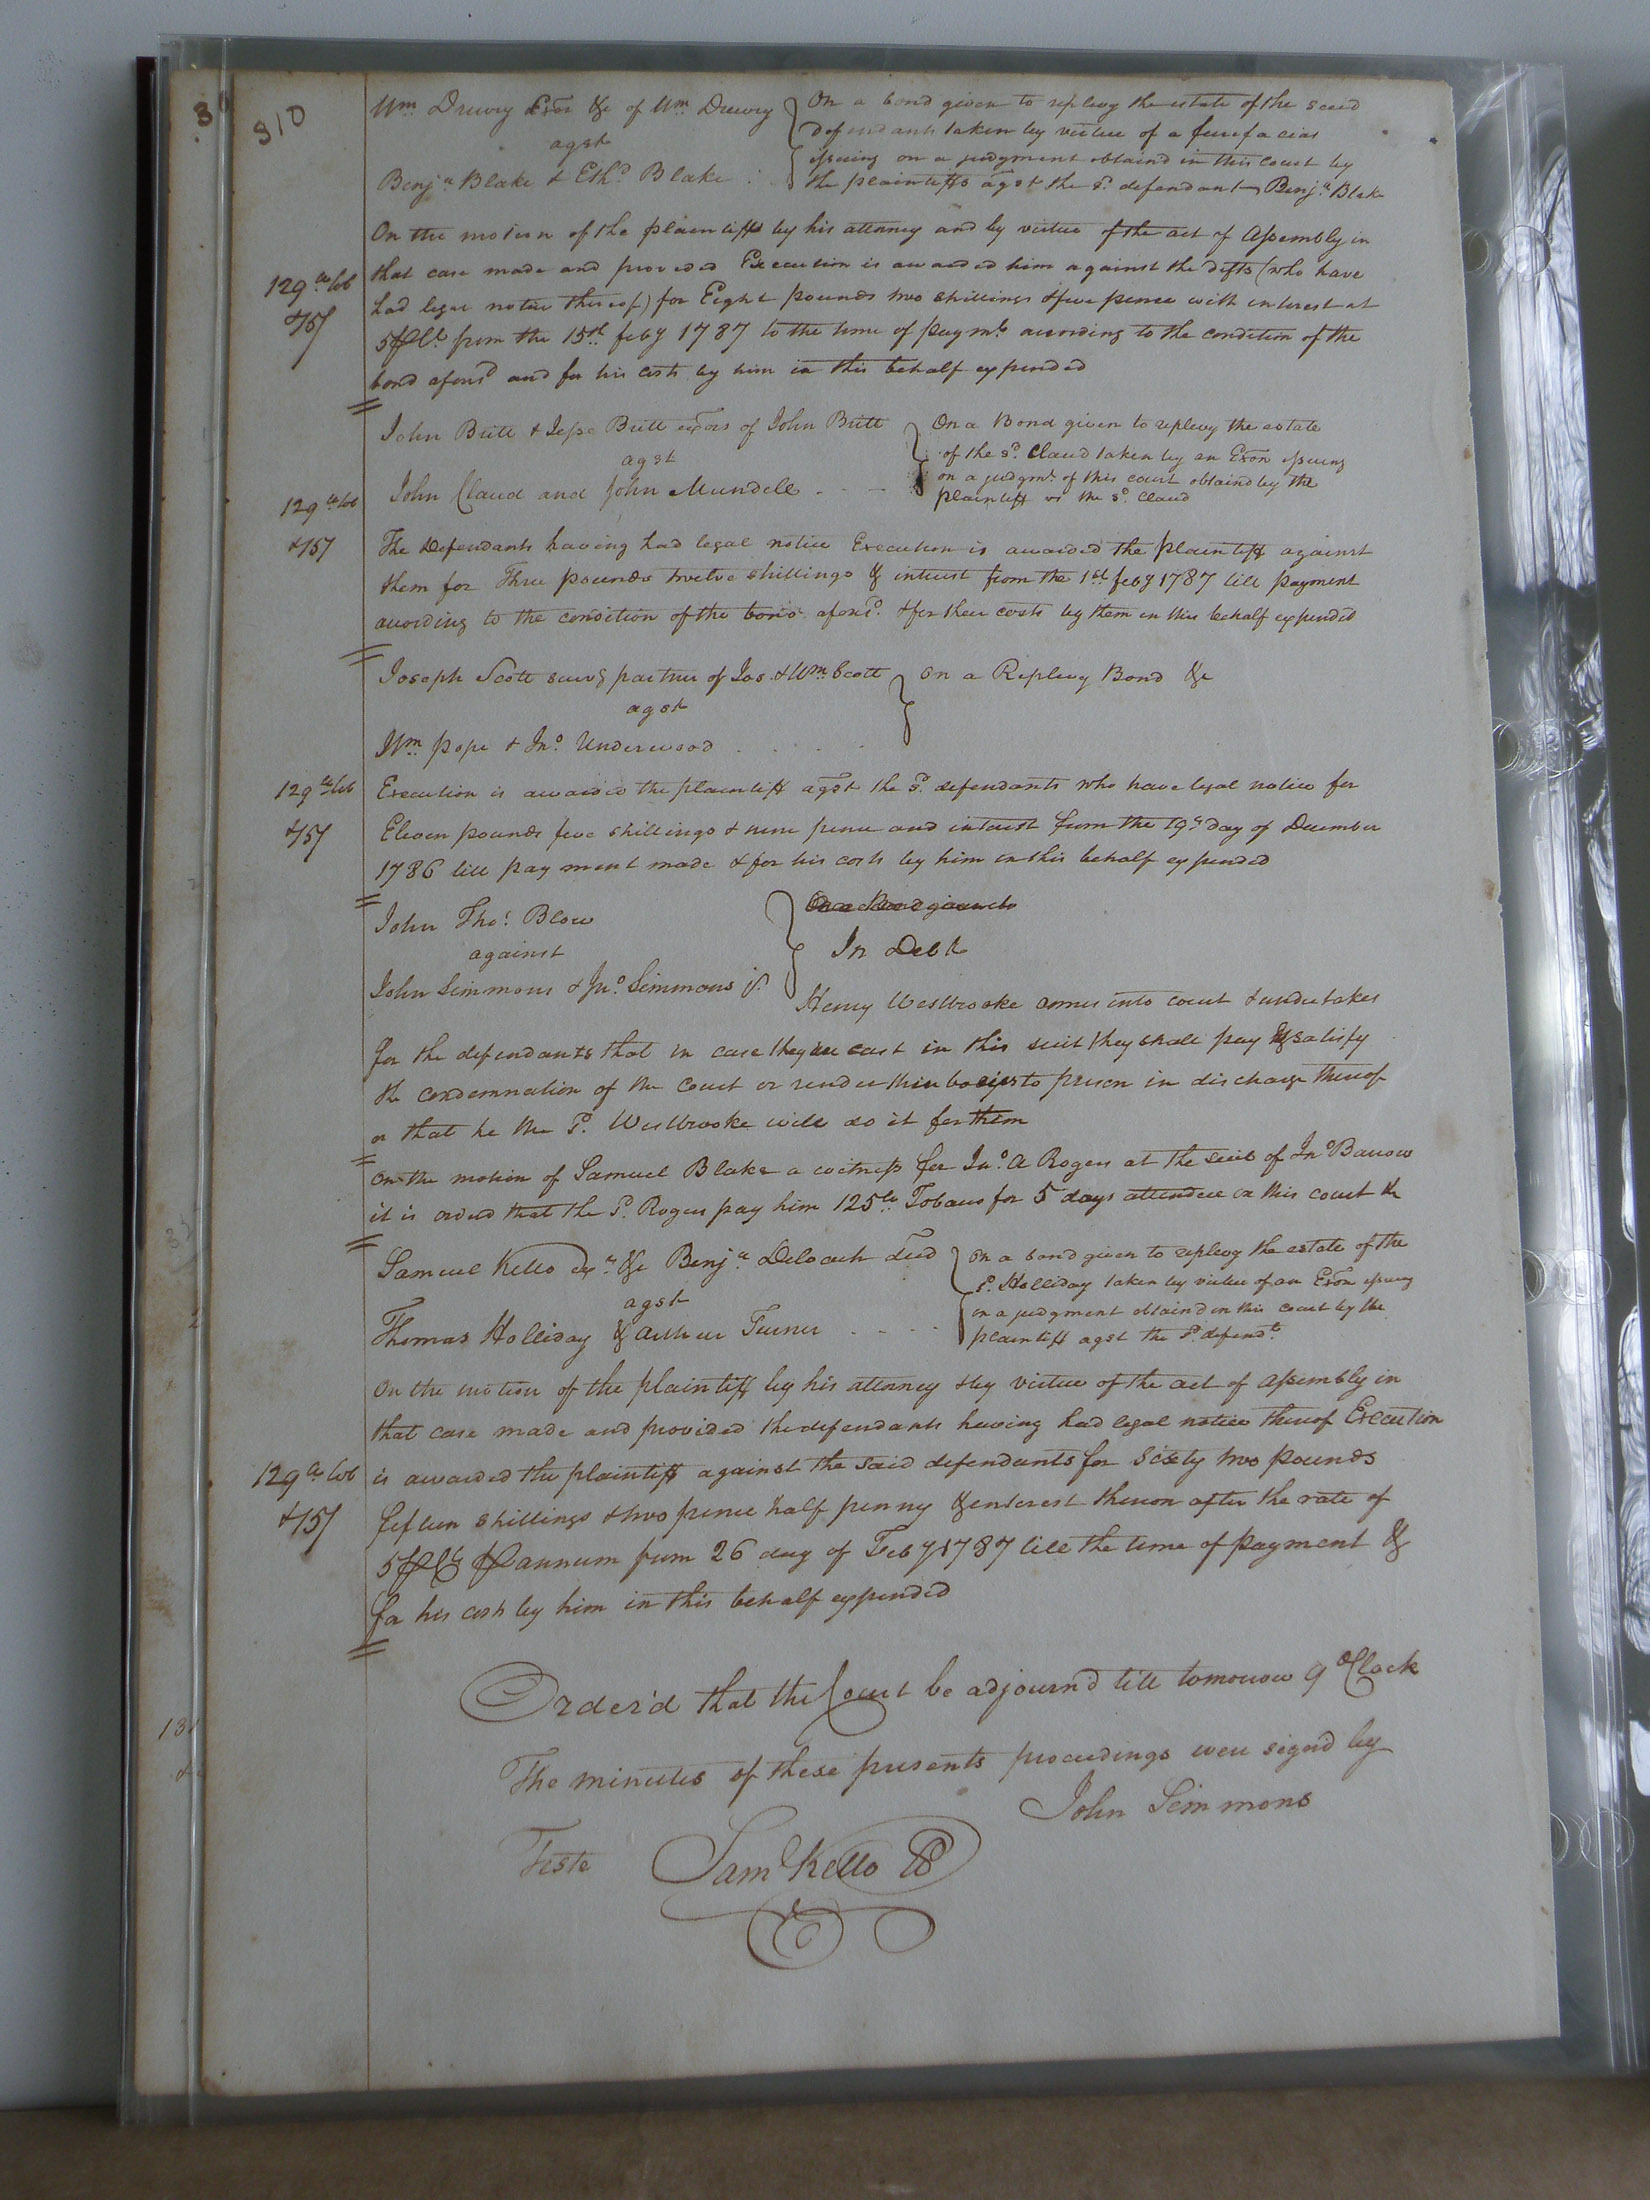 310
Wm Drewry Exor &c of Wm Drewry
agst
Benja Blake & Ethd Blake
On a bond given to replevy the estate of the said
defendants taken by virtue of a fierifacias
issuing on a judgment obtaind in this Court by
the plaintiffs agst the sd defendant Benja Blake
On the motion of the plaintiff by his attorney and by virtue of the act of Assembly in
that case made and provided Execution is awarded him against the defts (who have
129 lb tob
had legal notice thereof) for Eight pounds two shillings & five pence with interest at
& 15/
5 ⅌ Ct from the 15th feby 1787 to the time of paymt according to the condition of the
bond aforesd and for his costs by him in this behalf expended
John Britt & Jesse Britt exors of John Britt
agst
John Claud and John Mundell
On a Bond given to replevy the estate
of the sd Claud taken by an Exon issuing
on a judgmt of this court obtaind by the
plaintiff vs the sd Claud
129 lb tob
& 15/
The defendants having had legal notice Execution is awarded the plaintiff against
them for Three pounds twelve shillings & interest from the 1st feby 1787 till payment
according to the condition of the bond aforesd & for their costs by them in this behalf expended
Joseph Scott survg partner of Jos & Wm Scott
agst
Wm pope & Jno Underwood
on a Replevy Bond &c
129 lb tob
Execution is awarded the plaintiff agst the sd defendants who have legal notice for
& 15/
Eleven pounds five shillings & nine pence and interest from the 19th day of December
1786 till payment made & for his costs by him in this behalf expended
John Thos Blow
against
John Simmons & Jno Simmons jr
On a Bond given to
In Debt
Henry Westbrooke comes into court & undertakes
for the defendants that in case they are cast in this suit they shall pay & satisfy
the condemnation of the Court or render their bodies to prison in discharge thereof
or that he the sd Westbrooke will do it for them
On the motion of Samuel Blake a witness for Jno A Rogers at the suit of Jno Barrow
it is orderd that the sd Rogers pay him 125 lb Tobacco for 5 days attendce in this court &c
Samuel Kello exr &c Benja Deloach decd
agst
Thomas Holliday & Arthur Turner
on a bond given to replevy the estate of the
sd Holliday taken by virtue of an Exon issuing
on a judgment obtaind in this court by the
plaintiff agst the sd defendts
On the motion of the plaintiff by his attorney & by virtue of the act of Assembly in
that case made and provided the defendants having had legal notice thereof Execution
129 lb tob
is awarded the plaintiff against the said defendants for Sixty two pounds
& 15/
fifteen shillings & two pence half penny & interest thereon after the rate of
5 ⅌ Ct ⅌ annum from 26 day of Feby 1787 till the time of payment &
for his costs by him in this behalf expended
Order'd that the Court be adjourn'd till tomorrow 9 oClock
The minutes of these presents proceedings were signd by
John Simmons
Teste Saml Kello CC